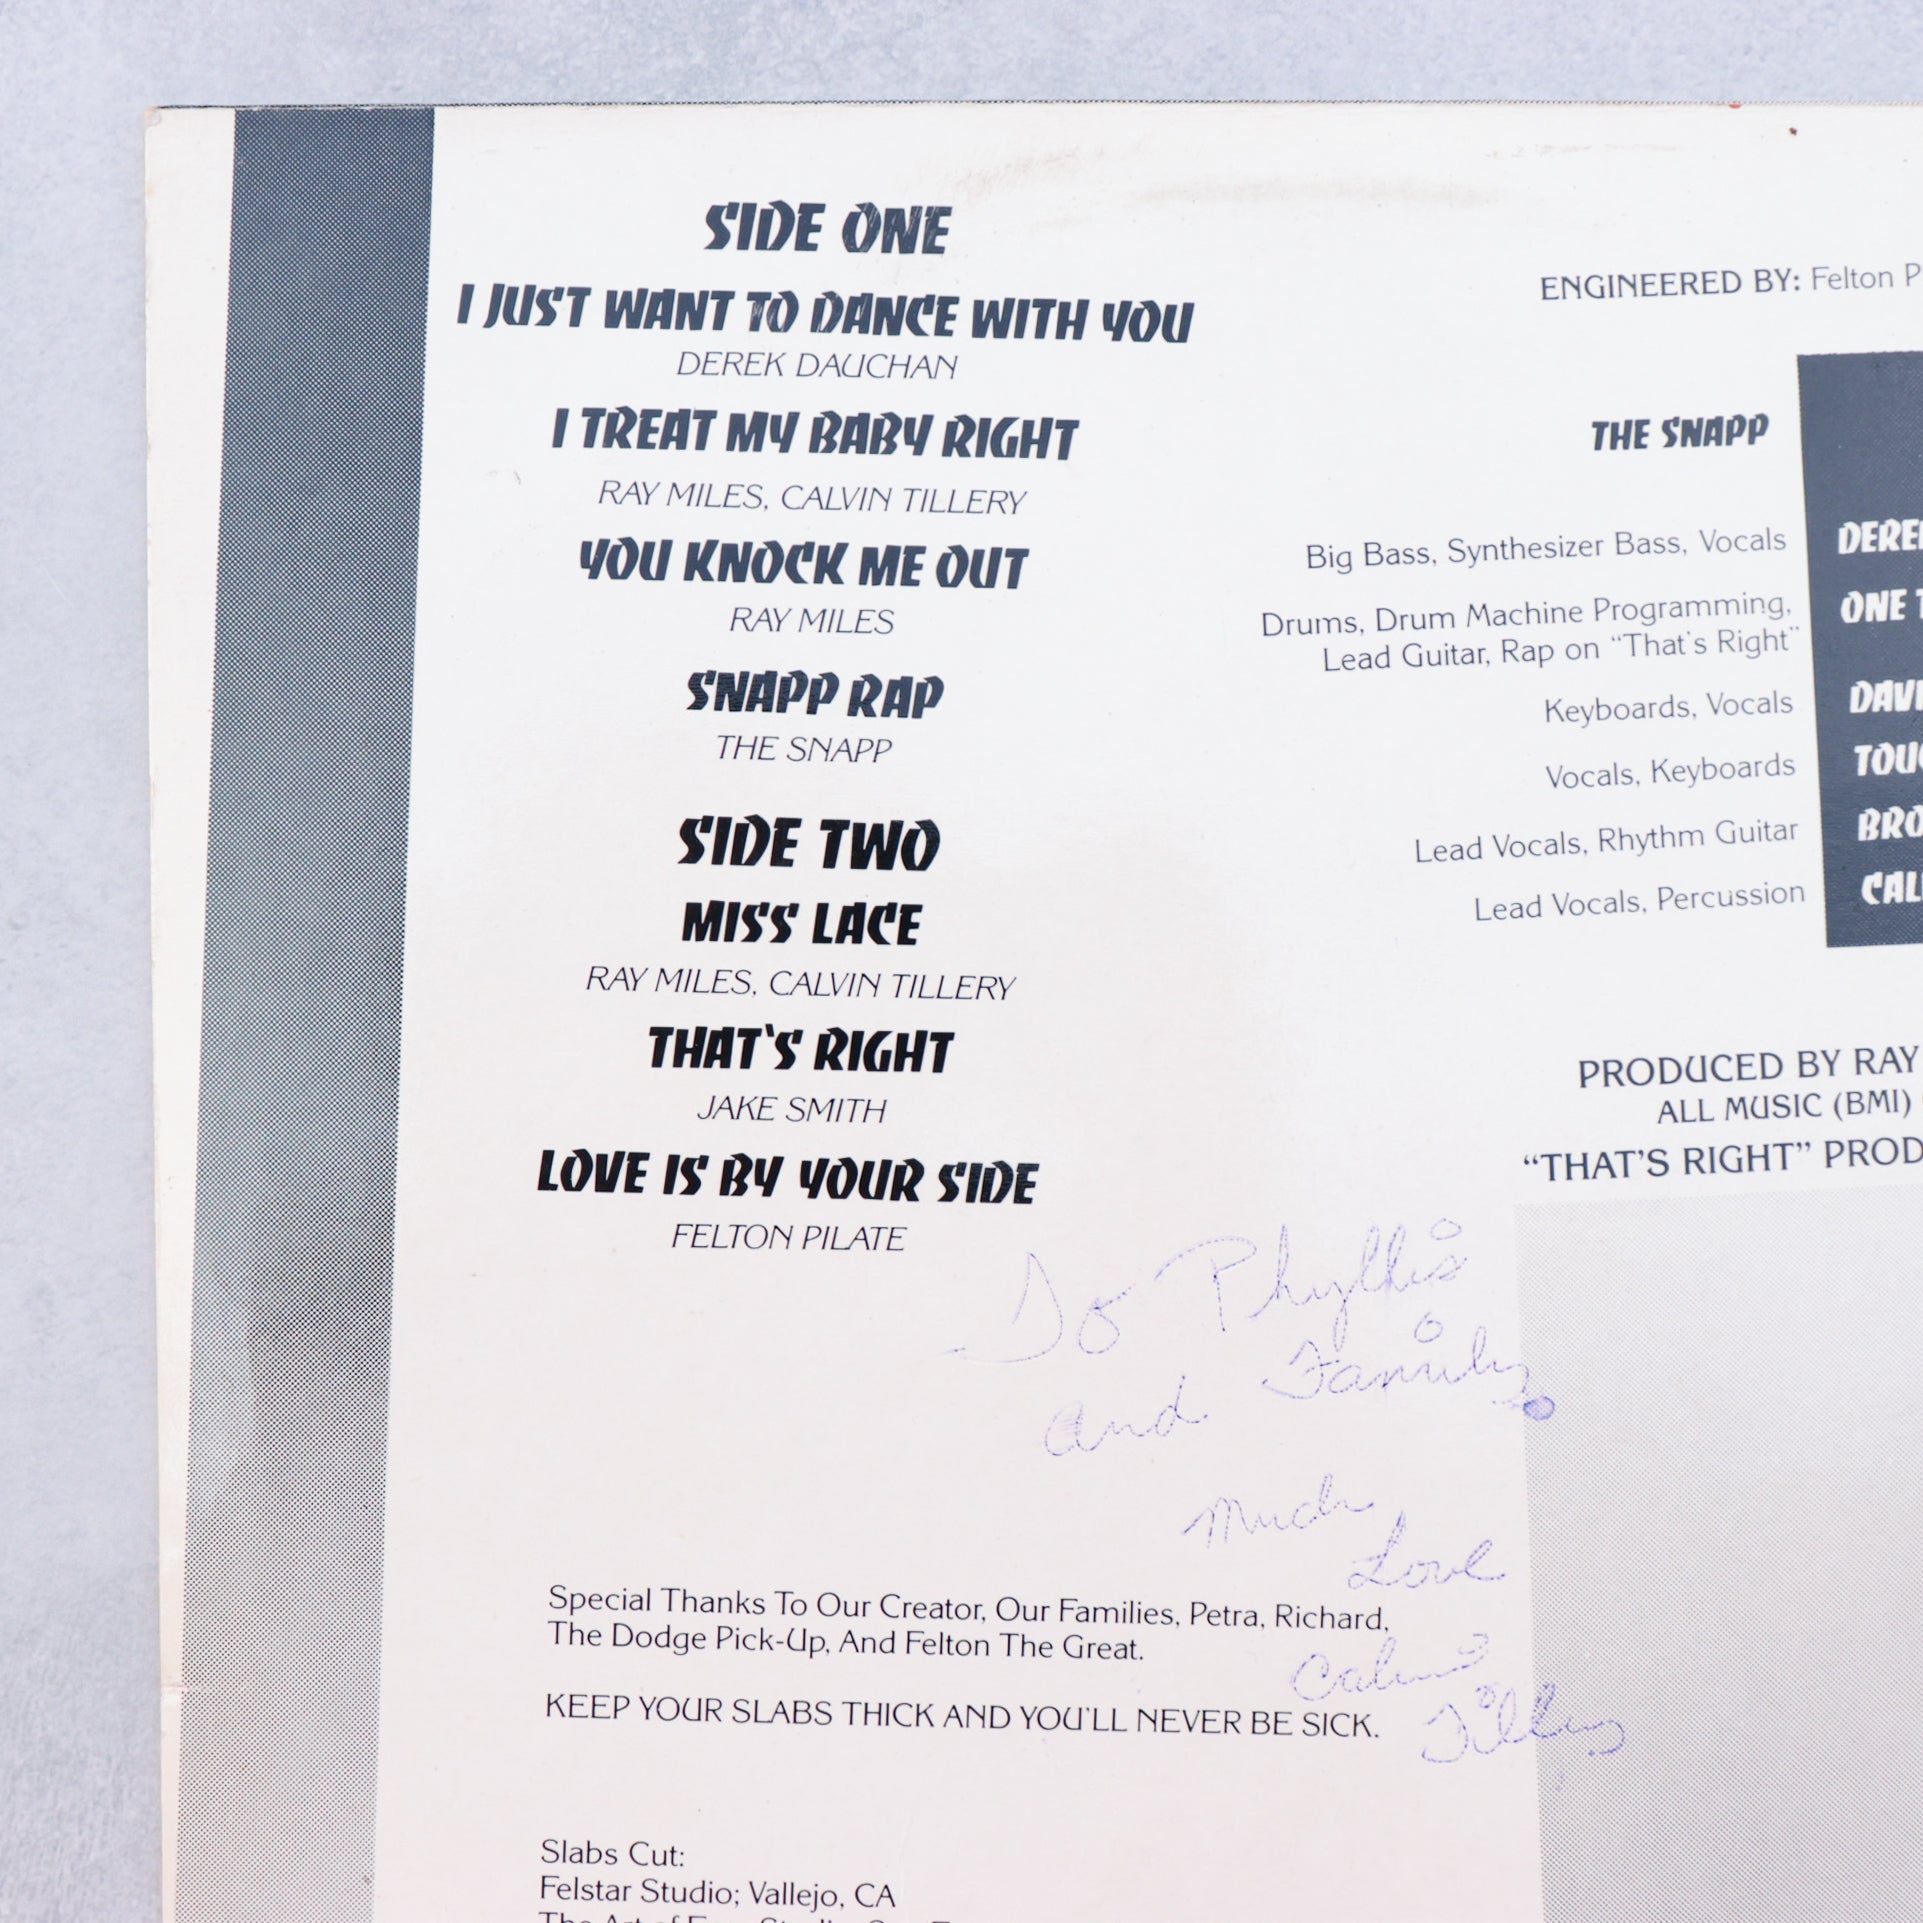 SIDE ONE
I JUST WANT TO DANCE WITH YOU
DEREK DAUCHAN
I TREAT MY BABY RIGHT
RAY MILES, CALVIN TILLERY
YOU KNOCK ME OUT
RAY MILES
SNAPP RAP
THE SNAPP
SIDE TWO
MISS LACE
RAY MILES, CALVIN TILLERY
THAT'S RIGHT
JAKE SMITH
LOVE IS BY YOUR SIDE
FELTON PILATE
ENGINEERED BY: Felton P
THE SNAPP
Big Bass, Synthesizer Bass, Vocals
DERE
Drums, Drum Machine Programming,
Lead Guitar, Rap on "That's Right"
ONE
Keyboards, Vocals
DAVI
Vocals, Keyboards
TOU
Lead Vocals, Rhythm Guitar
BRO
Lead Vocals, Percussion
CAL
PRODUCED BY RAY
ALL MUSIC (BMI)
"THAT'S RIGHT" PROD
To Phyllis
and Family
Much
Love
Calvin
Tillery
Special Thanks To Our Creator, Our Families, Petra, Richard,
The Dodge Pick-Up, And Felton The Great.
KEEP YOUR SLABS THICK AND YOU'LL NEVER BE SICK.
Slabs Cut:
Felstar Studio; Vallejo, CA